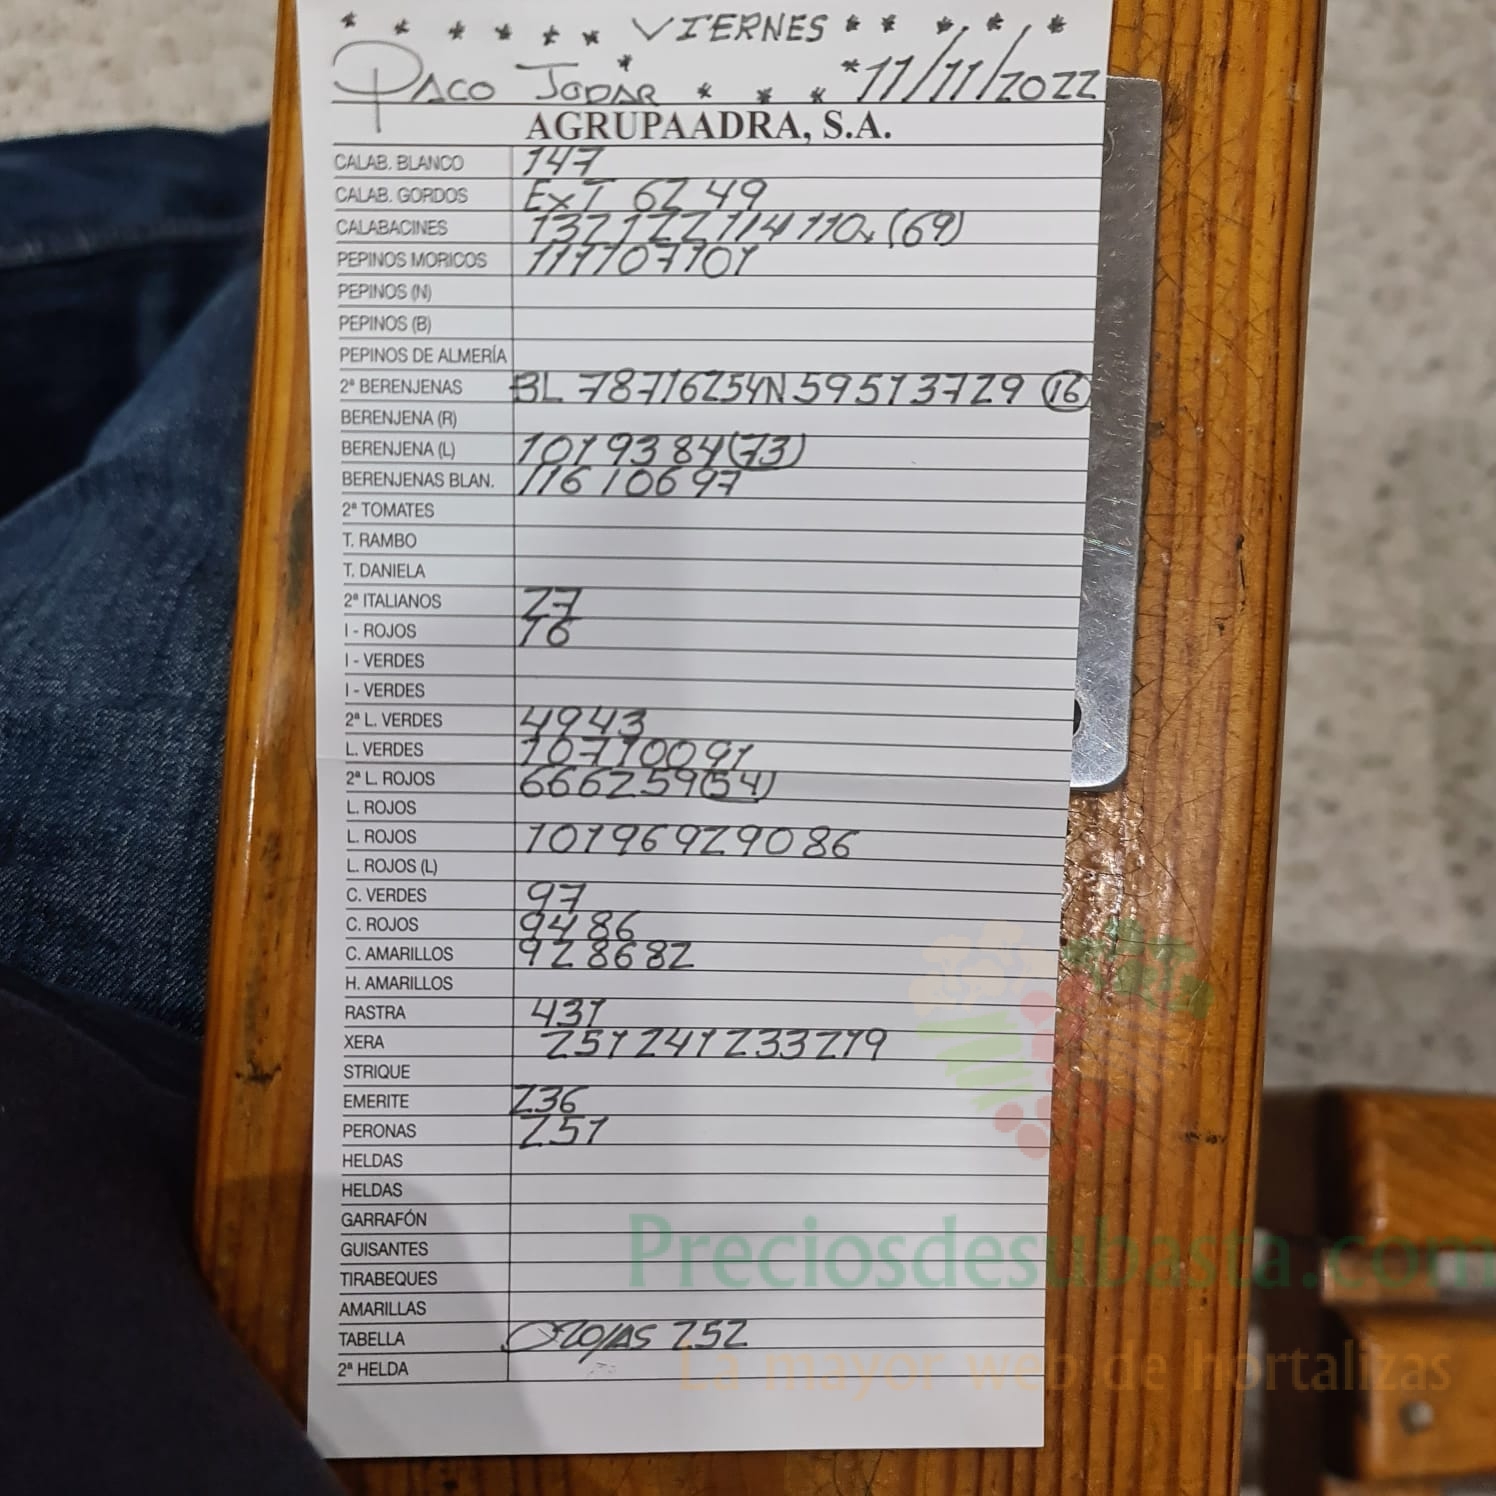 * * * * * * VIERNES * * * * *
PACO JODAR * * * * *11/11/2022
AGRUPAADRA, S.A.
CALAB. BLANCO 147
CALAB. GORDOS EXT 62 49
CALABACINES 132 122 114 110x (69)
PEPINOS MORICOS 111 107 101
PEPINOS (N)
PEPINOS (B)
PEPINOS DE ALMERÍA
2ª BERENJENAS BL 78 71 62 54 N 59 51 37 29 (16)
BERENJENA (R)
BERENJENA (L) 101 93 84 (73)
BERENJENAS BLAN. 116 106 97
2ª TOMATES
T. RAMBO
T. DANIELA
2ª ITALIANOS 27
I - ROJOS 76
I - VERDES
I - VERDES
2ª L. VERDES 49 43
L. VERDES 107 100 91
2ª L. ROJOS 66 62 59 (54)
L. ROJOS
L. ROJOS 101 96 92 90 86
L. ROJOS (L)
C. VERDES 97
C. ROJOS 94 86
C. AMARILLOS 92 86 82
H. AMARILLOS
RASTRA 431
XERA 251 241 233 219
STRIQUE
EMERITE 236
PERONAS 251
HELDAS
HELDAS
GARRAFÓN
GUISANTES
TIRABEQUES
AMARILLAS
TABELLA 252
2ª HELDA
Preciosdesubasta.com
La mayor web de hortalizas